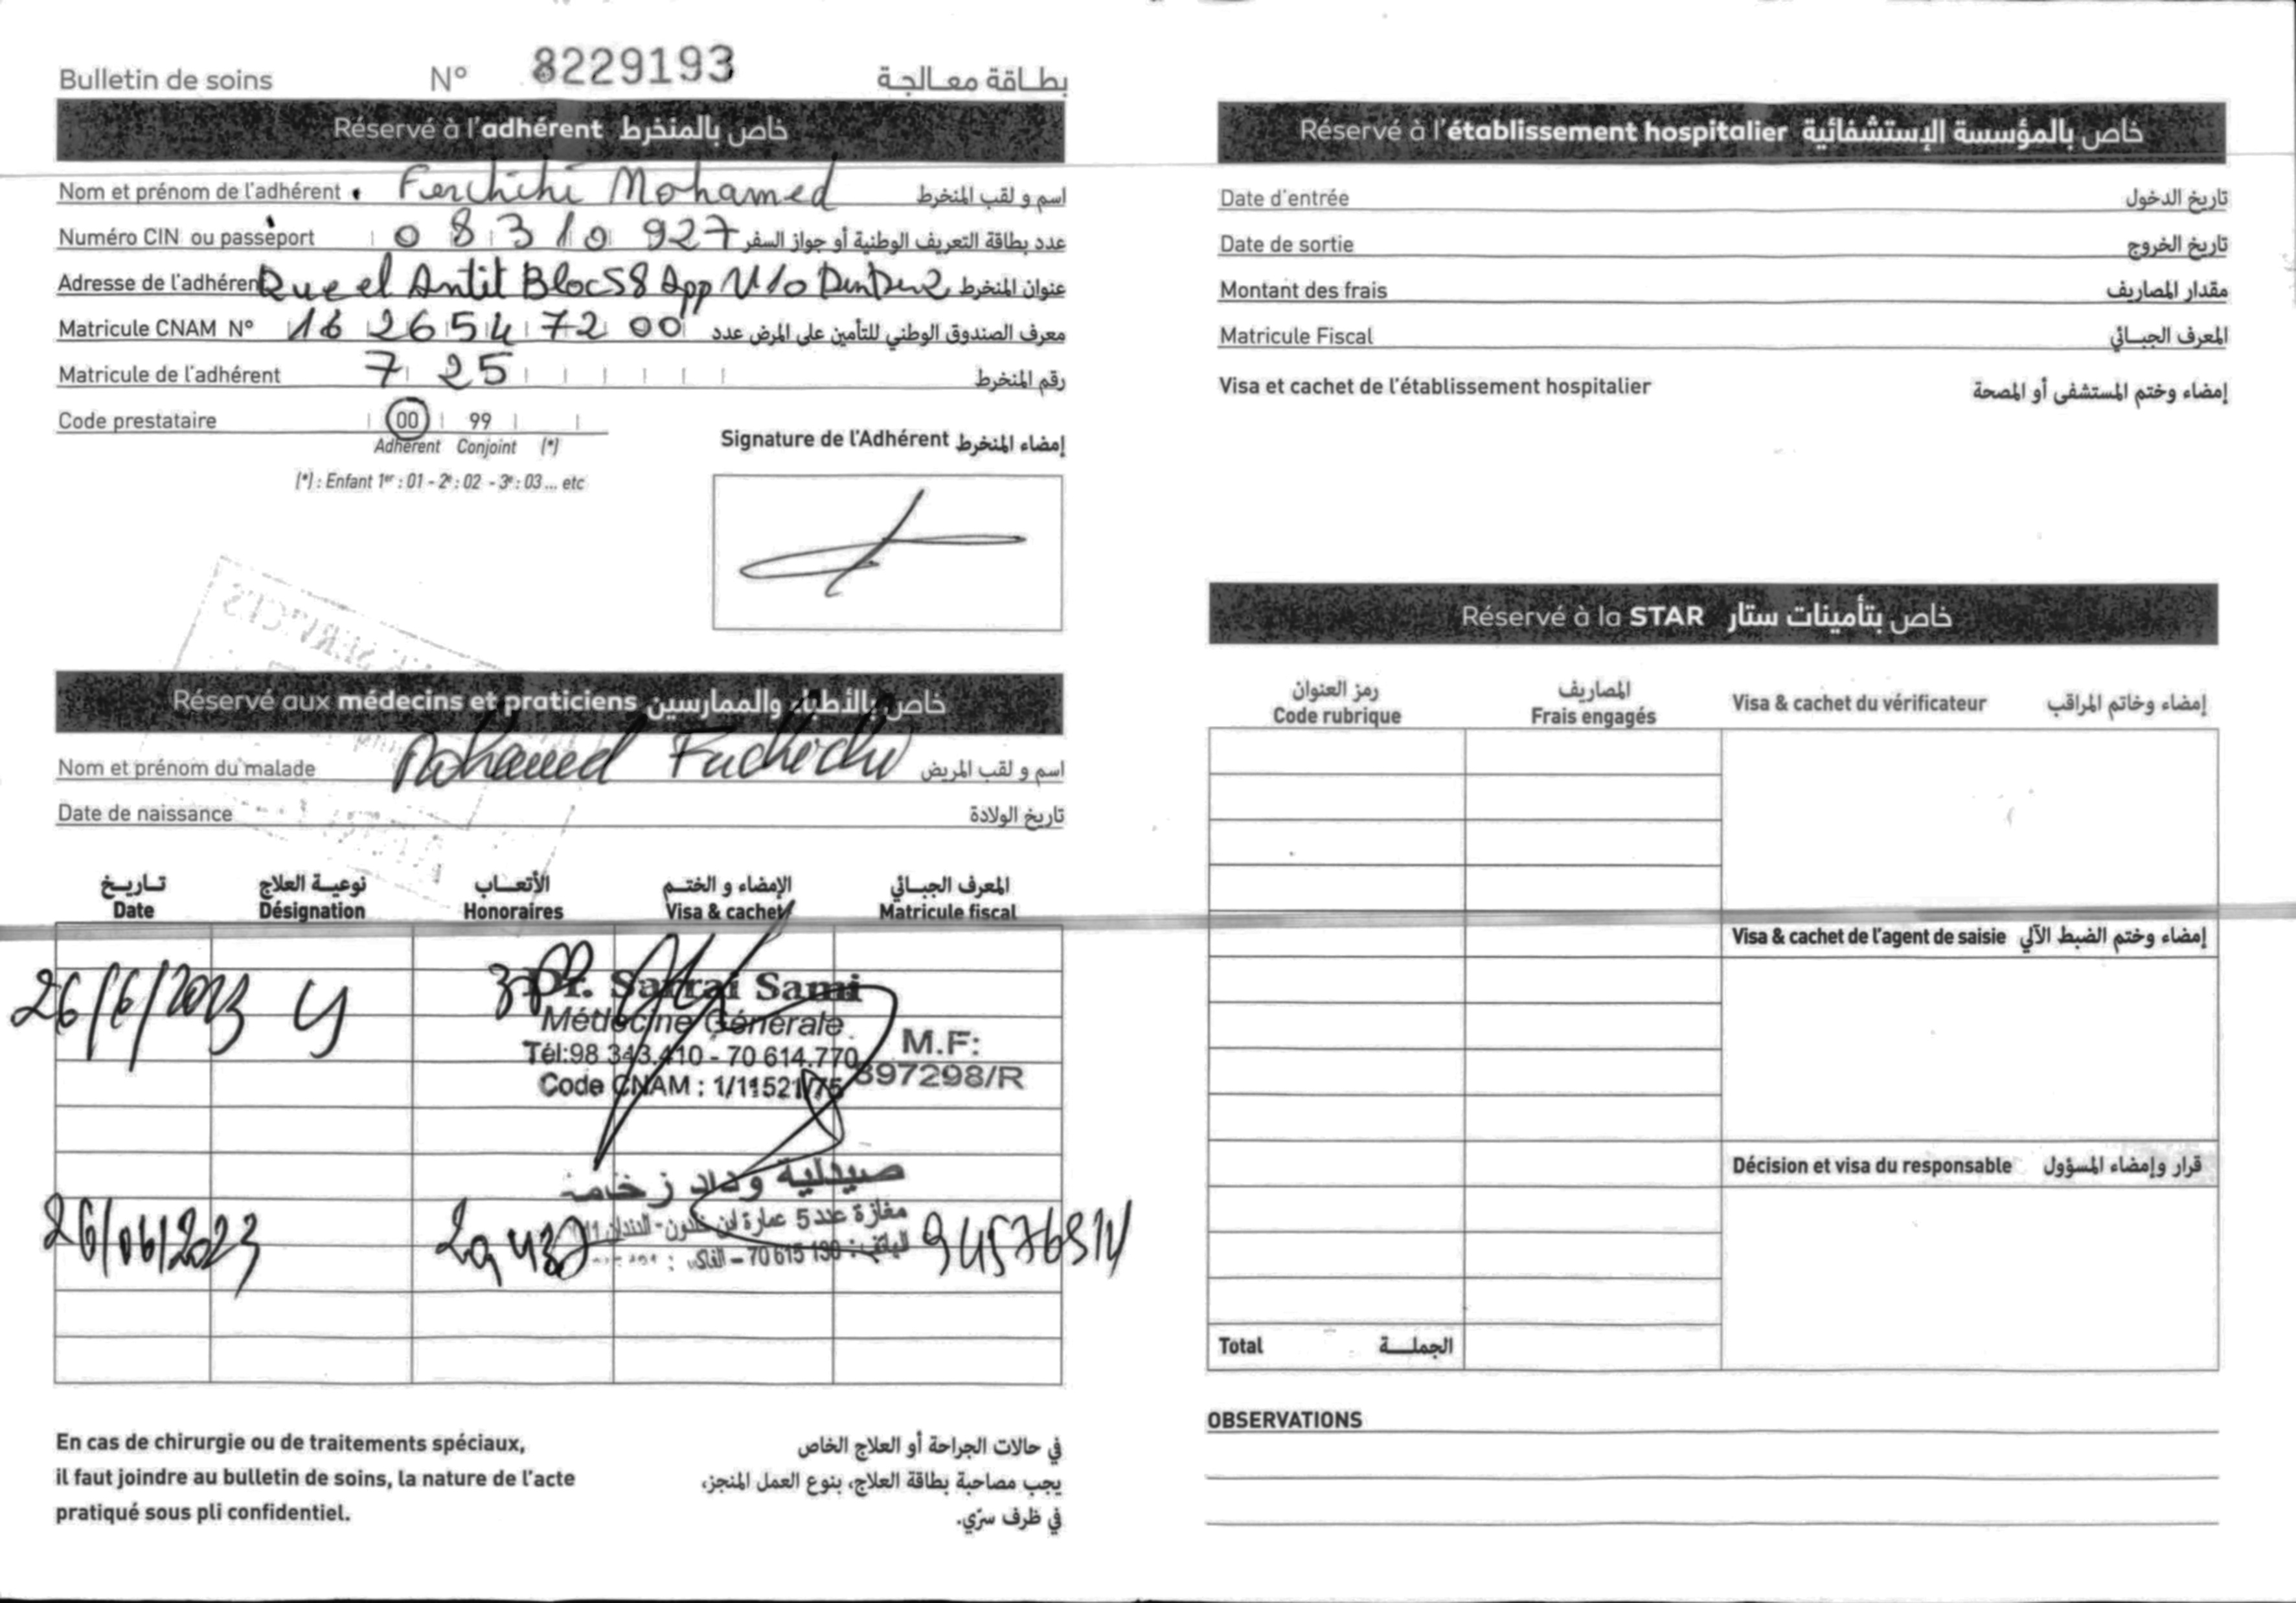 Bulletin de soins N° 8229193 بطاقة معالجة
Réservé à l'adhérent خاص بالمنخرط
Nom et prénom de l'adhérent Ferchichi Mohamed اسم و لقب المنخرط
Numéro CIN ou passeport 08310927 عدد بطاقة التعريف الوطنية أو جواز السفر
Adresse de l'adhérent Rue el Antit Bloc58 App N10 DenDen2 عنوان المنخرط
Matricule CNAM N° 16 26547200 معرف الصندوق الوطني للتأمين على المرض عدد
Matricule de l'adhérent 725 رقم المنخرط
Code prestataire 00 99
Adhérent Conjoint (*)
(*) : Enfant 1er : 01 - 2e : 02 - 3e : 03 ... etc
Signature de l'Adhérent إمضاء المنخرط
Réservé aux médecins et praticiens خاص بالأطباء والممارسين
Nom et prénom du malade Mohamed Ferchichi اسم و لقب المريض
Date de naissance تاريخ الولادة
تاريخ نوعية العلاج الأتعاب الإمضاء و الختم المعرف الجبائي
Date Désignation Honoraires Visa & cachet Matricule fiscal
26/6/2023
Dr. Sarrai Sami
Médecine Générale
Tél:98 343.410 - 70 614.770
Code CNAM : 1/11521/75
M.F:
897298/R
صيدلية وداد زخامة
مغازة عدد 5 عمارة ابن خلدون - الدندان
الهاتف : 70 615 130 – الفاكس :
26/06/2023 29,430
En cas de chirurgie ou de traitements spéciaux,
il faut joindre au bulletin de soins, la nature de l'acte
pratiqué sous pli confidentiel.
في حالات الجراحة أو العلاج الخاص
يجب مصاحبة بطاقة العلاج، بنوع العمل المنجز،
في ظرف سرّي.
Réservé à l'établissement hospitalier خاص بالمؤسسة الإستشفائية
Date d'entrée تاريخ الدخول
Date de sortie تاريخ الخروج
Montant des frais مقدار المصاريف
Matricule Fiscal المعرف الجبائي
Visa et cachet de l'établissement hospitalier إمضاء وختم المستشفى أو المصحة
Réservé à la STAR خاص بتأمينات ستار
رمز العنوان المصاريف
Code rubrique Frais engagés Visa & cachet du vérificateur إمضاء وخاتم المراقب
Visa & cachet de l'agent de saisie إمضاء وختم الضبط الآلي
Décision et visa du responsable قرار وإمضاء المسؤول
Total الجملة
OBSERVATIONS